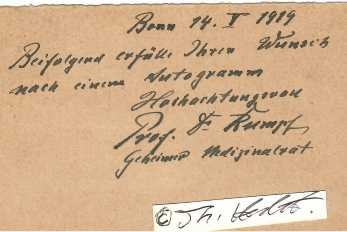 Bonn 14. V 1919
Beifolgend erfülle Ihren Wunsch
nach einem Autogramm
Hochachtungsvoll
Prof. Dr Rumpf
Geheimer Medizinalrat
© Th.